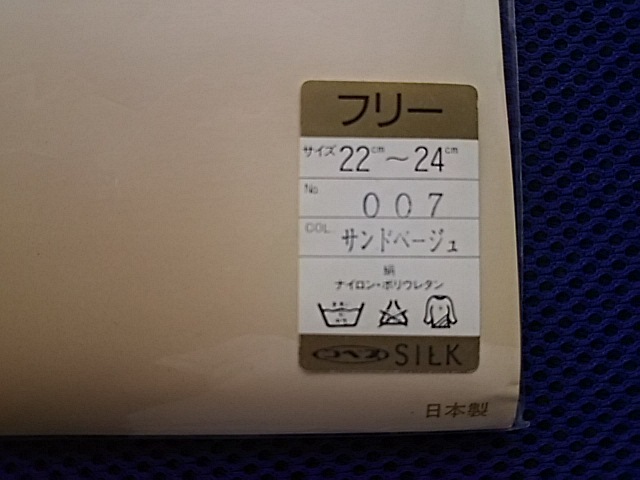 フリー
サイズ 22cm～24cm
No 007
COL. サンドベージュ
絹
ナイロン・ポリウレタン
SILK
日本製